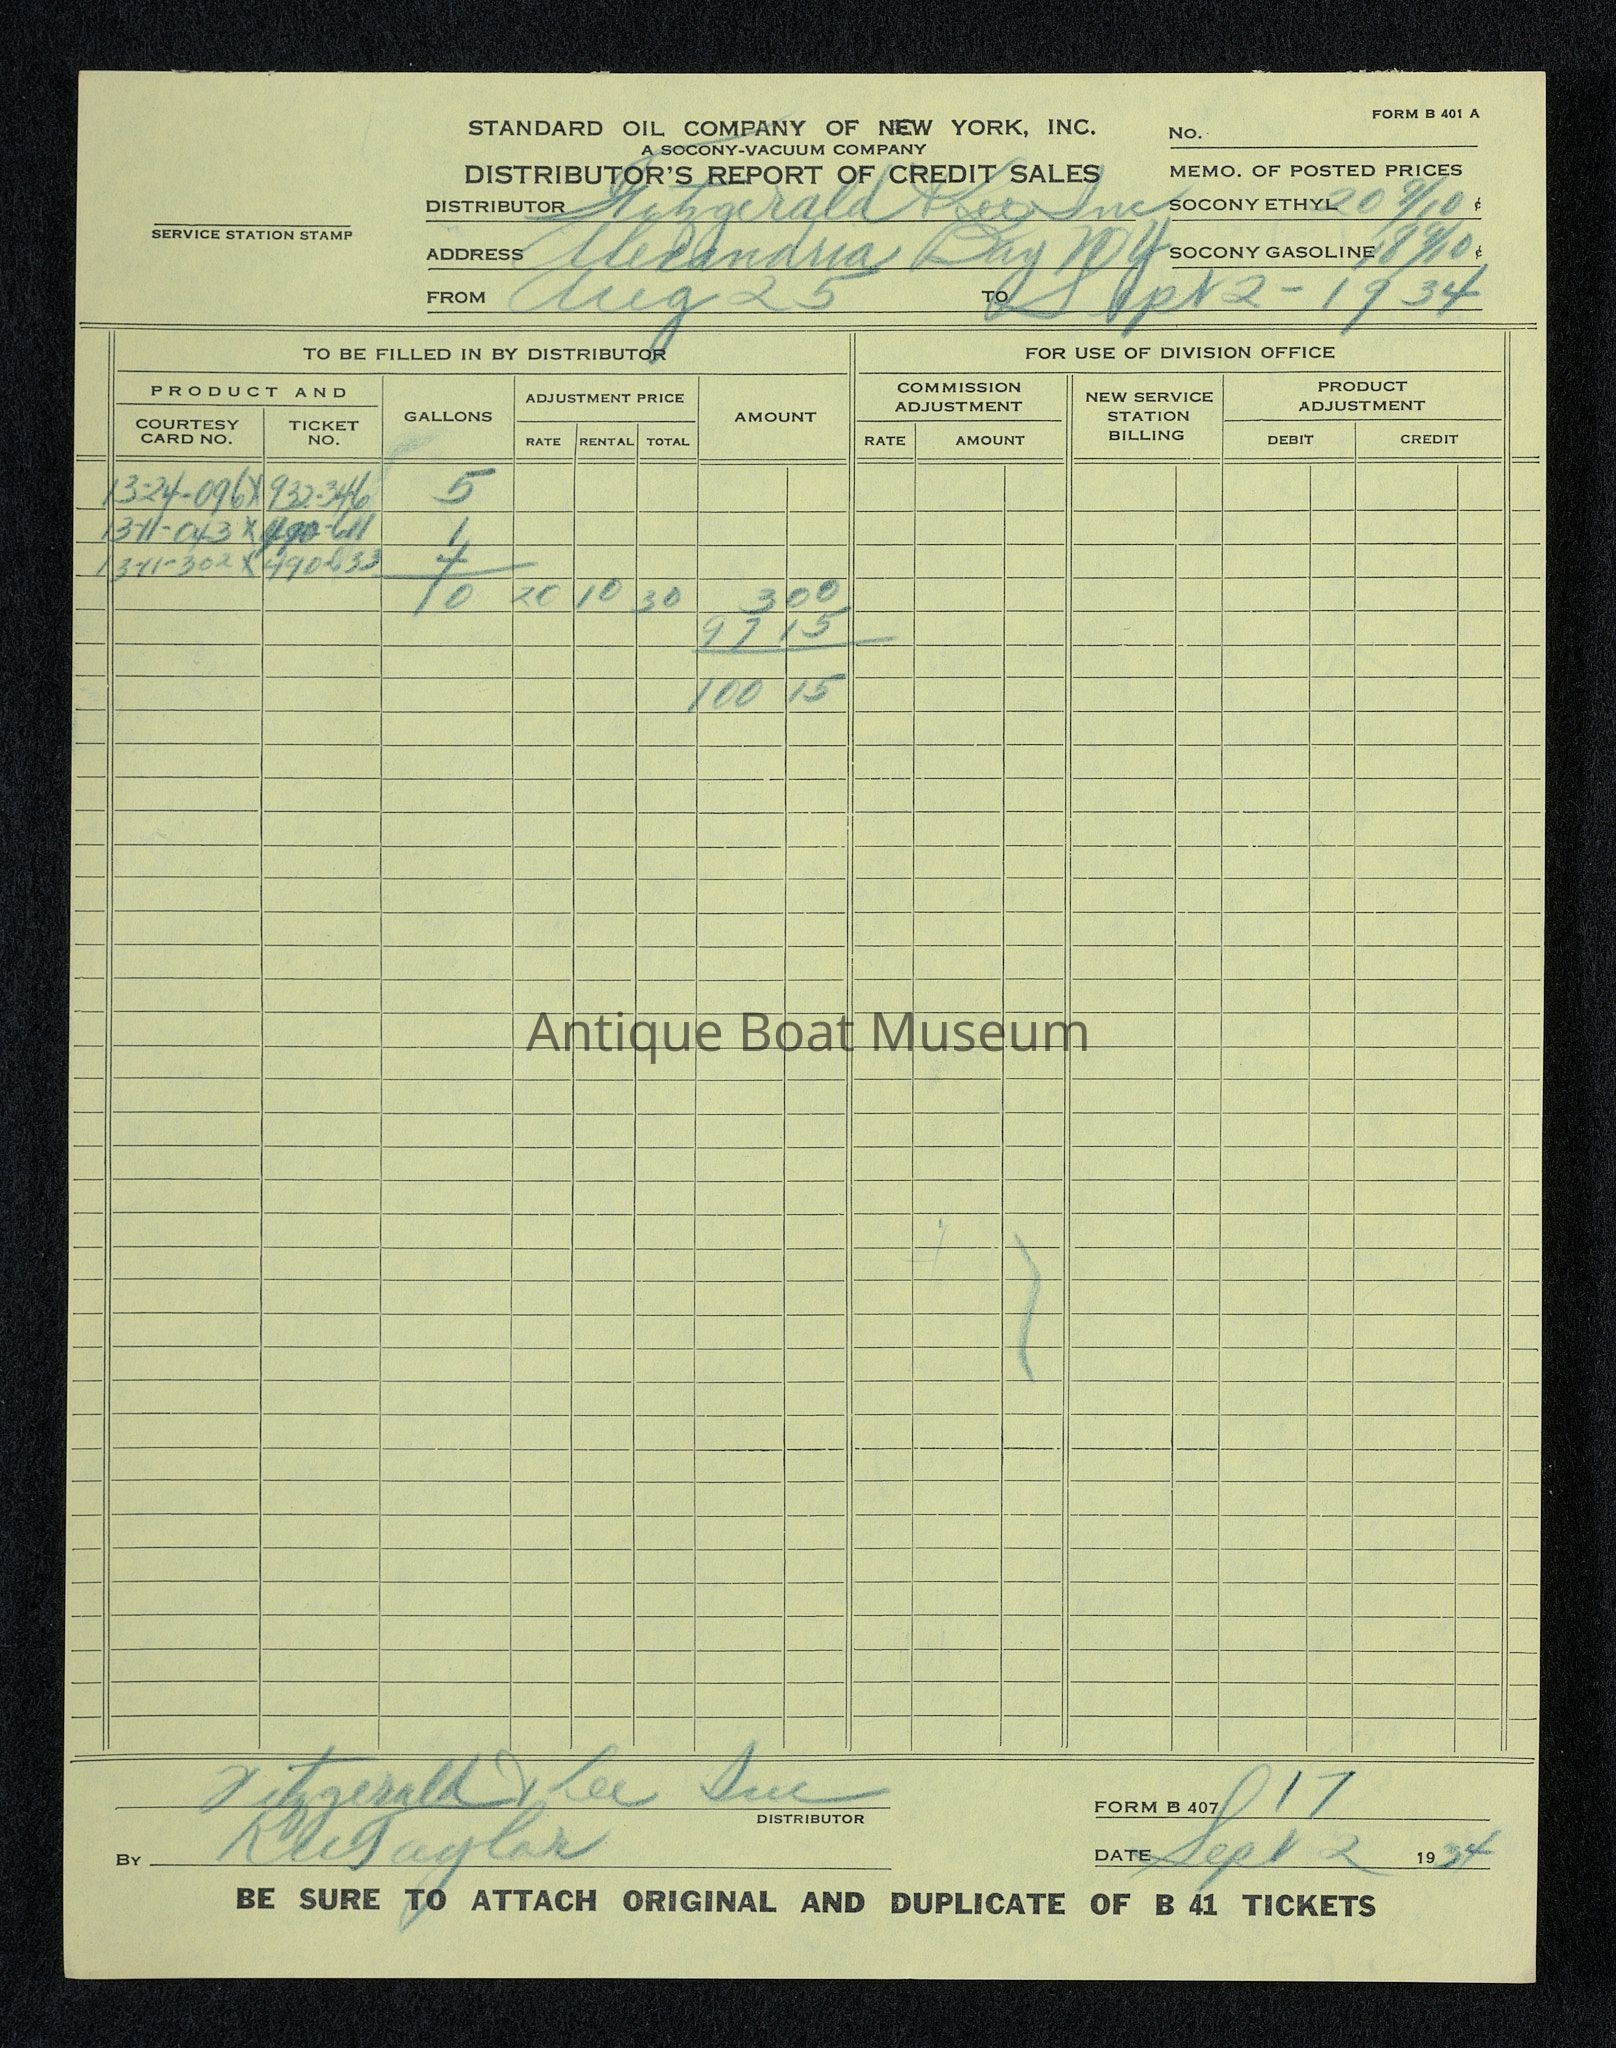 FORM B 401 A
STANDARD OIL COMPANY OF NEW YORK, INC.
No.
A SOCONY-VACUUM COMPANY
MEMO. OF POSTED PRICES
DISTRIBUTOR'S REPORT OF CREDIT SALES
DISTRIBUTOR Fitzgerald & Lee Inc
SOCONY ETHYL 20 9/10 ¢
SERVICE STATION STAMP
ADDRESS Alexandria Bay NY
SOCONY GASOLINE 18 9/10 ¢
FROM Aug 25 TO Sept 2 - 1934
TO BE FILLED IN BY DISTRIBUTOR
FOR USE OF DIVISION OFFICE
PRODUCT AND
COURTESY CARD NO.
TICKET NO.
GALLONS
ADJUSTMENT PRICE
RATE RENTAL TOTAL
AMOUNT
COMMISSION ADJUSTMENT
RATE AMOUNT
NEW SERVICE STATION BILLING
PRODUCT ADJUSTMENT
DEBIT CREDIT
13-24-096 X 932-346 5
13-11-043 X 490-611 1
13-11-302 X 490-633 4
10 20 10 30 3 00
97 15
100 15
Antique Boat Museum
Fitzgerald & Lee Inc
DISTRIBUTOR
FORM B 407 17
By Taylor
DATE Sept 2 1934
BE SURE TO ATTACH ORIGINAL AND DUPLICATE OF B 41 TICKETS